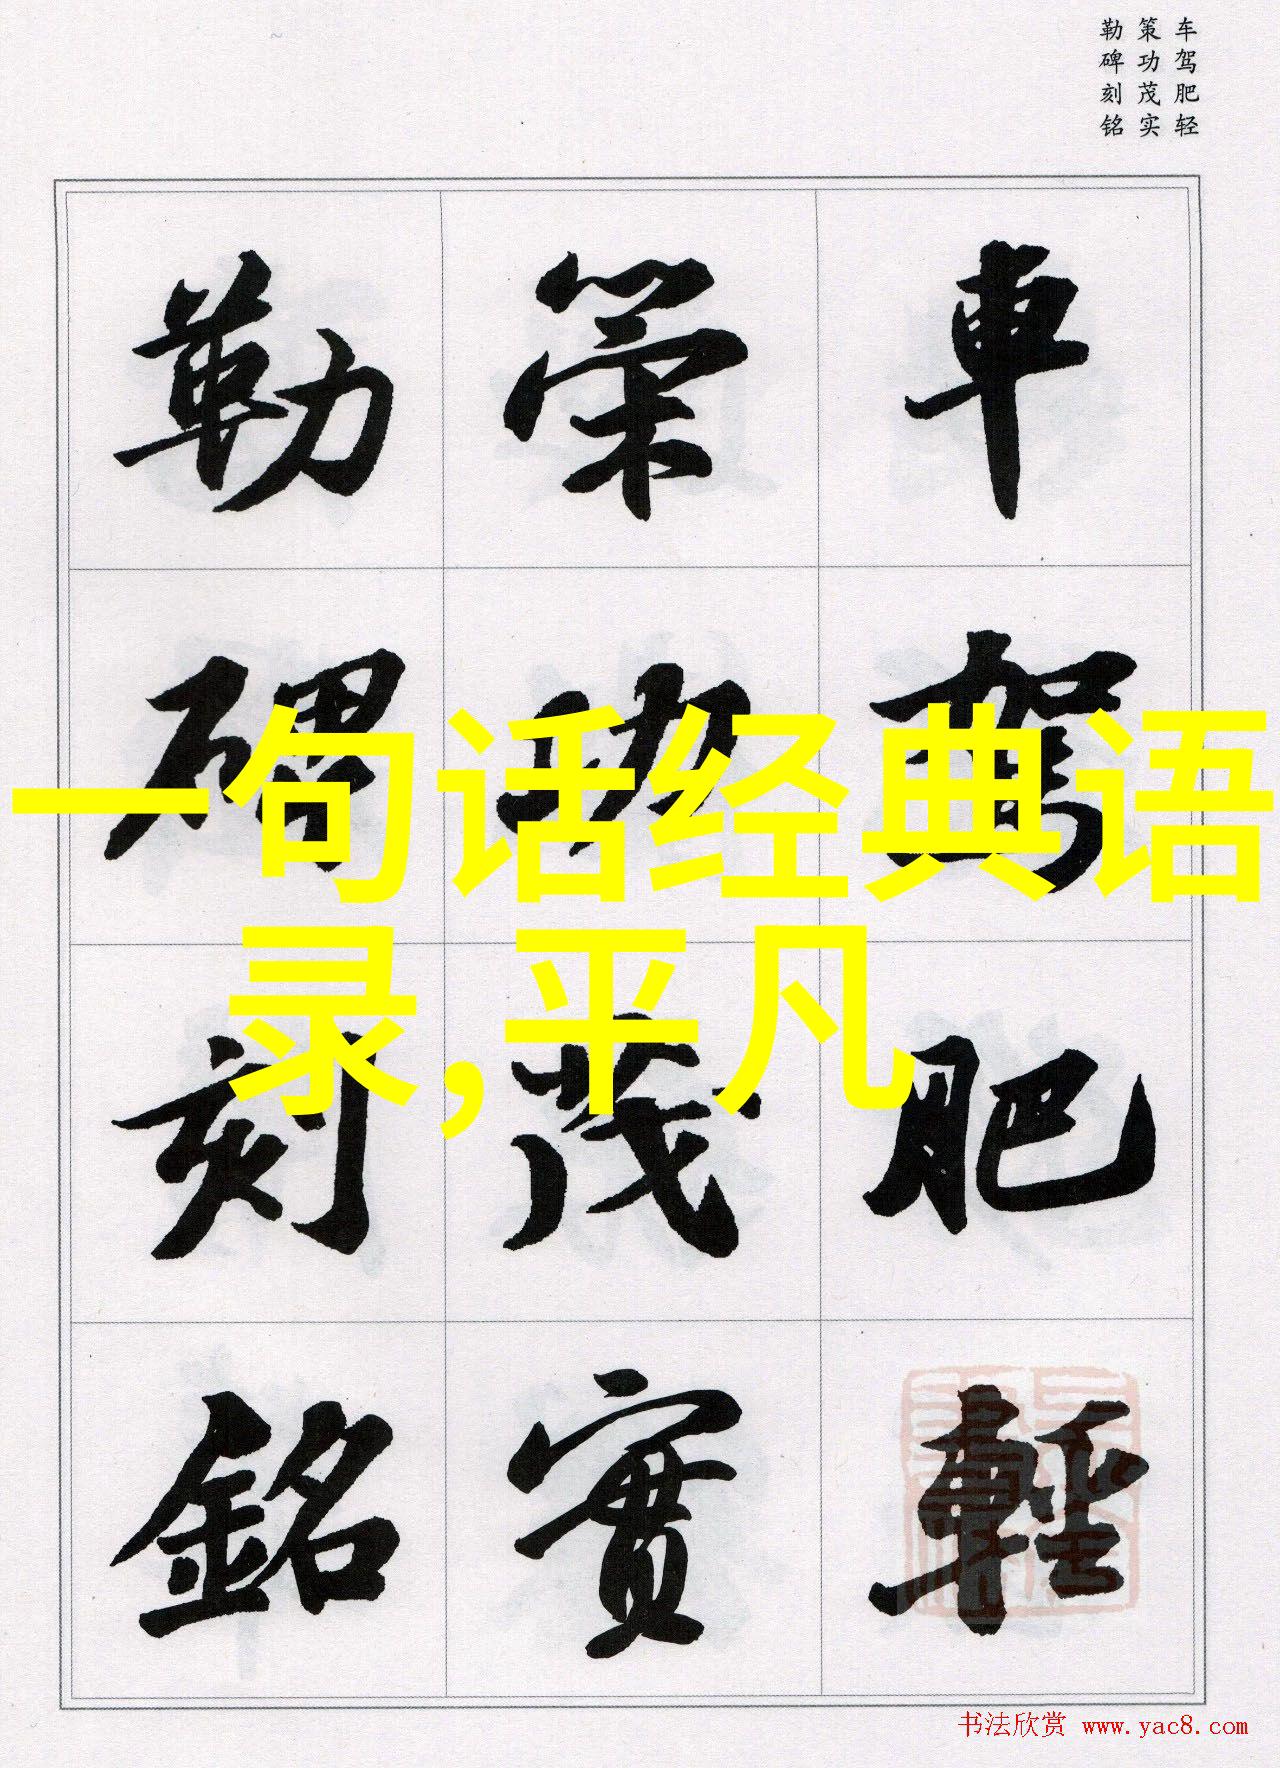 车驾肥轻
策功茂实
勒碑刻铭
車駕肥輕
策功茂實
勒碑刻銘
一句话经典语
录,平凡
书法欣赏 www.yac8.com